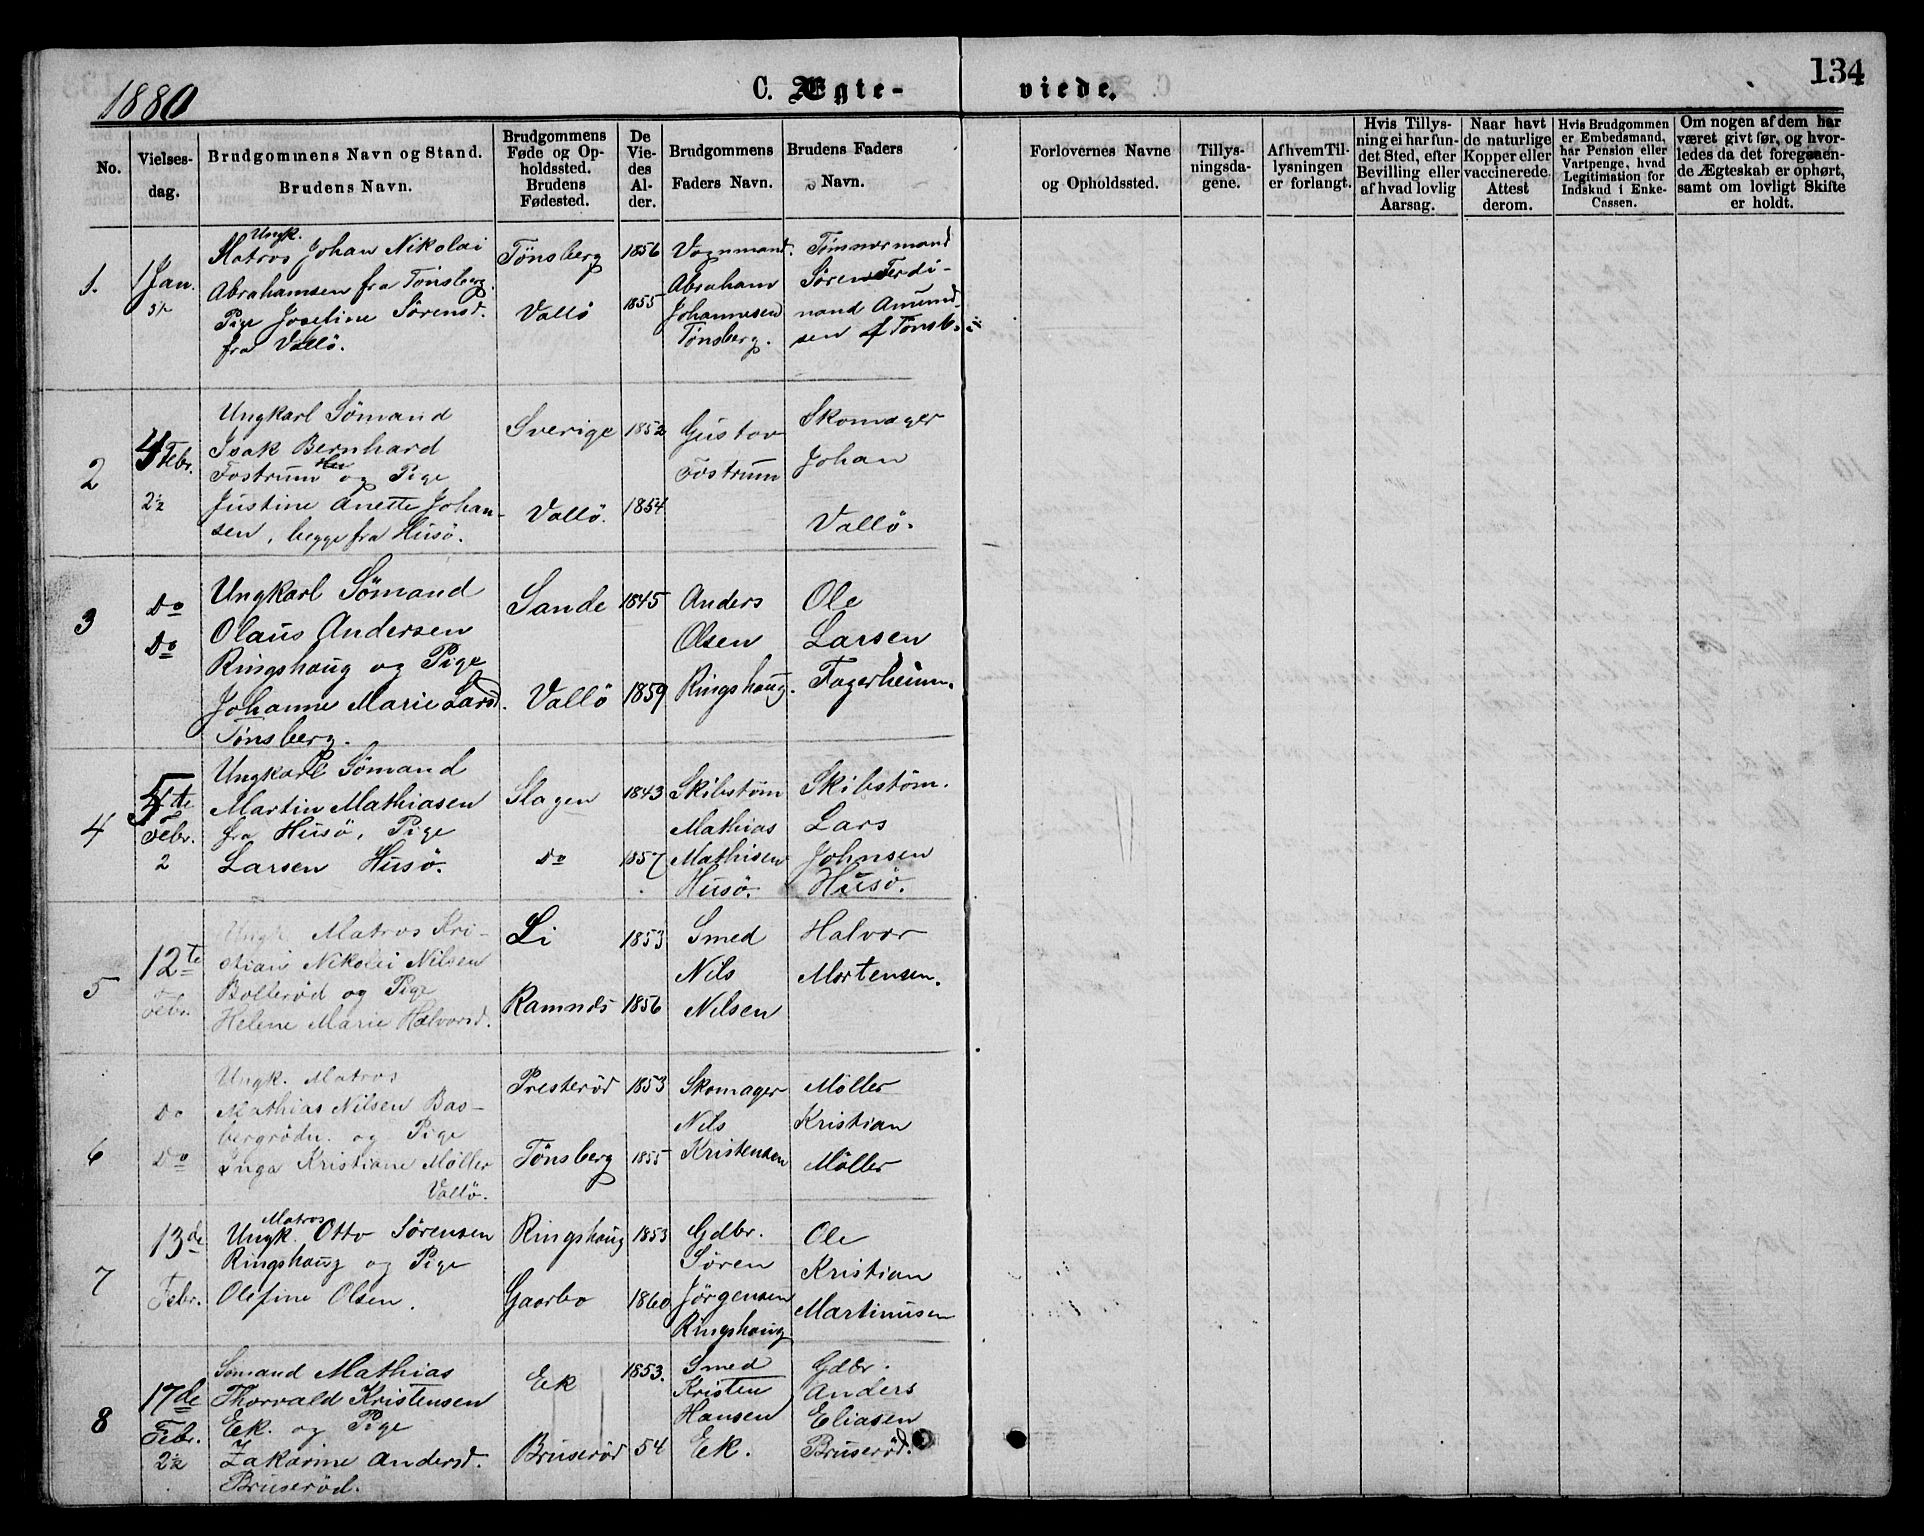 1880
C. Ægte-
viede.
134
No.
Vielses-
dag.
Brudgommens Navn og Stand.
Brudens Navn.
Brudgommens
Føde og Op-
holdssted.
Brudens
Fødested.
De
Vie-
des
Al-
der.
Brudgommens
Faders Navn.
Brudens Faders
Navn.
Forlovernes Navne
og Opholdssted.
Tillys-
ningsda-
gene.
Af hvem Til-
lysningen
er forlangt.
Hvis Tillys-
ning ei har fun-
det Sted, efter
Bevilling eller
af hvad lovlig
Aarsag.
Naar havt
de naturlige
Kopper eller
vaccinerede.
Attest
derom.
Hvis Brudgommen
er Embedsmand,
har Pension eller
Vartpenge, hvad
Legitimation for
Indskud i Enke-
Cassen.
Om nogen af dem har
været givt før, og hvor-
ledes da det foregaaen-
de Ægteskab er ophørt,
samt om lovligt Skifte
er holdt.
1.
Jan.
Ungk.
Matros Johan Nikolai
Abrahamsen fra Tönsberg.
Pige Josefine Sörensd.
fra Vallö.
Tönsberg
Vallö
1856
1855
Vognmand
Abraham
Johannesen
Tönsberg.
Tömmermand
Sören Ferdi-
nand Amund-
sen af Tönsb.
2
4 Febr.
2½
Ungkarl Sömand
Isak Bernhard
Fostrum og Pige
Justine Anette Johan-
sen, begge fra Husö.
Sverige
Vallö.
1852
1854
Gustav
Fostrum
Skomager
Johan
Vallö.
3
Do
Do
Ungkarl Sömand
Olaus Andersen
Ringshaug og Pige
Johanne Marie Larsd.
Tönsberg.
Sande
Vallö
1845
1859
Anders
Olsen
Ringshaug.
Ole
Larsen
Fagerheim.
4
5te
Febr.
2
Ungkarl Sömand
Martin Mathiasen
fra Husö, Pige
Larsen Husö.
Slagen
Do
1843
1857
Skibstöm
Mathias
Mathisen
Husö.
Skibstöm.
Lars
Johnsen
Husö.
5
12te
Febr.
Ungk. Matros Kri-
stian Nikolai Nilsen
Bolleröd og Pige
Helene Marie Halvorsd.
Li
Ramnæs
1853
1856
Smed
Nils
Nilsen
Halvor
Mortensen.
6
Do
Do
Ungk. Matros
Mathias Nilsen Bas-
bergrödn. og Pige
Inga Kristiane Möller
Vallö.
Presteröd
Tönsberg
1853
1855
Skomager
Nils
Kristensen
Möller
Kristian
Möller
7
13de
Febr.
Matros
Ungk. Otto Sörensen
Ringshaug og Pige
Olefine Olsen.
Ringshaug
Gaarbo
1853
1860
Gdbr.
Sören
Jörgensen
Ringshaug
Ole
Kristian
Martinusen
8
17de
Febr.
2½
Sömand Mathias
Thorvald Kristensen
Ek. og Pige
Zakarine Andersd.
Bruseröd.
Ek
Bruseröd
1853.
54
Smed
Kristen
Hansen
Ek.
Gdbr.
Anders
Eliasen
Bruseröd.